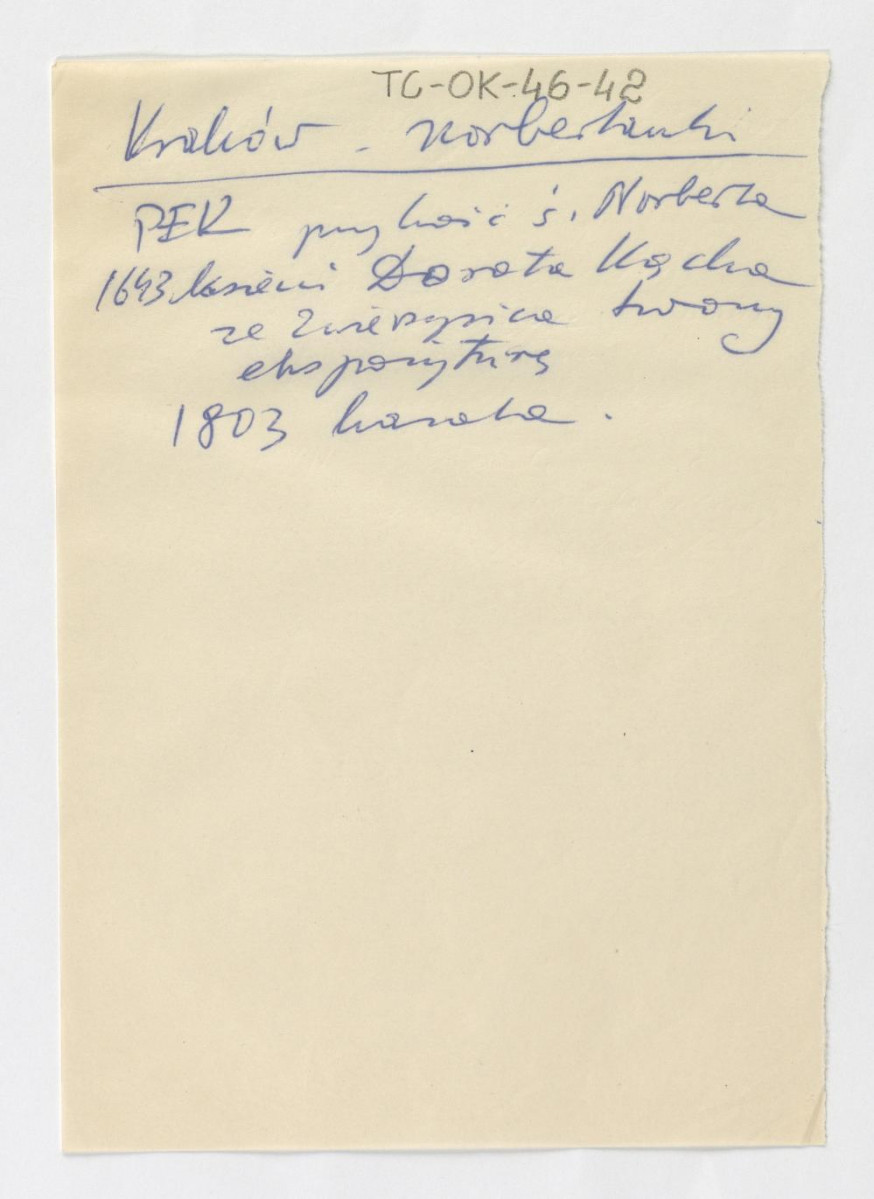 TC-OK-46-42
Kraków - Norbertanki
PEK przy kość ś. Norberta
1643 ksieni Dorota Kącka
ze Zwierzyńca tworzy
ekspozyturę
1803 kasata.